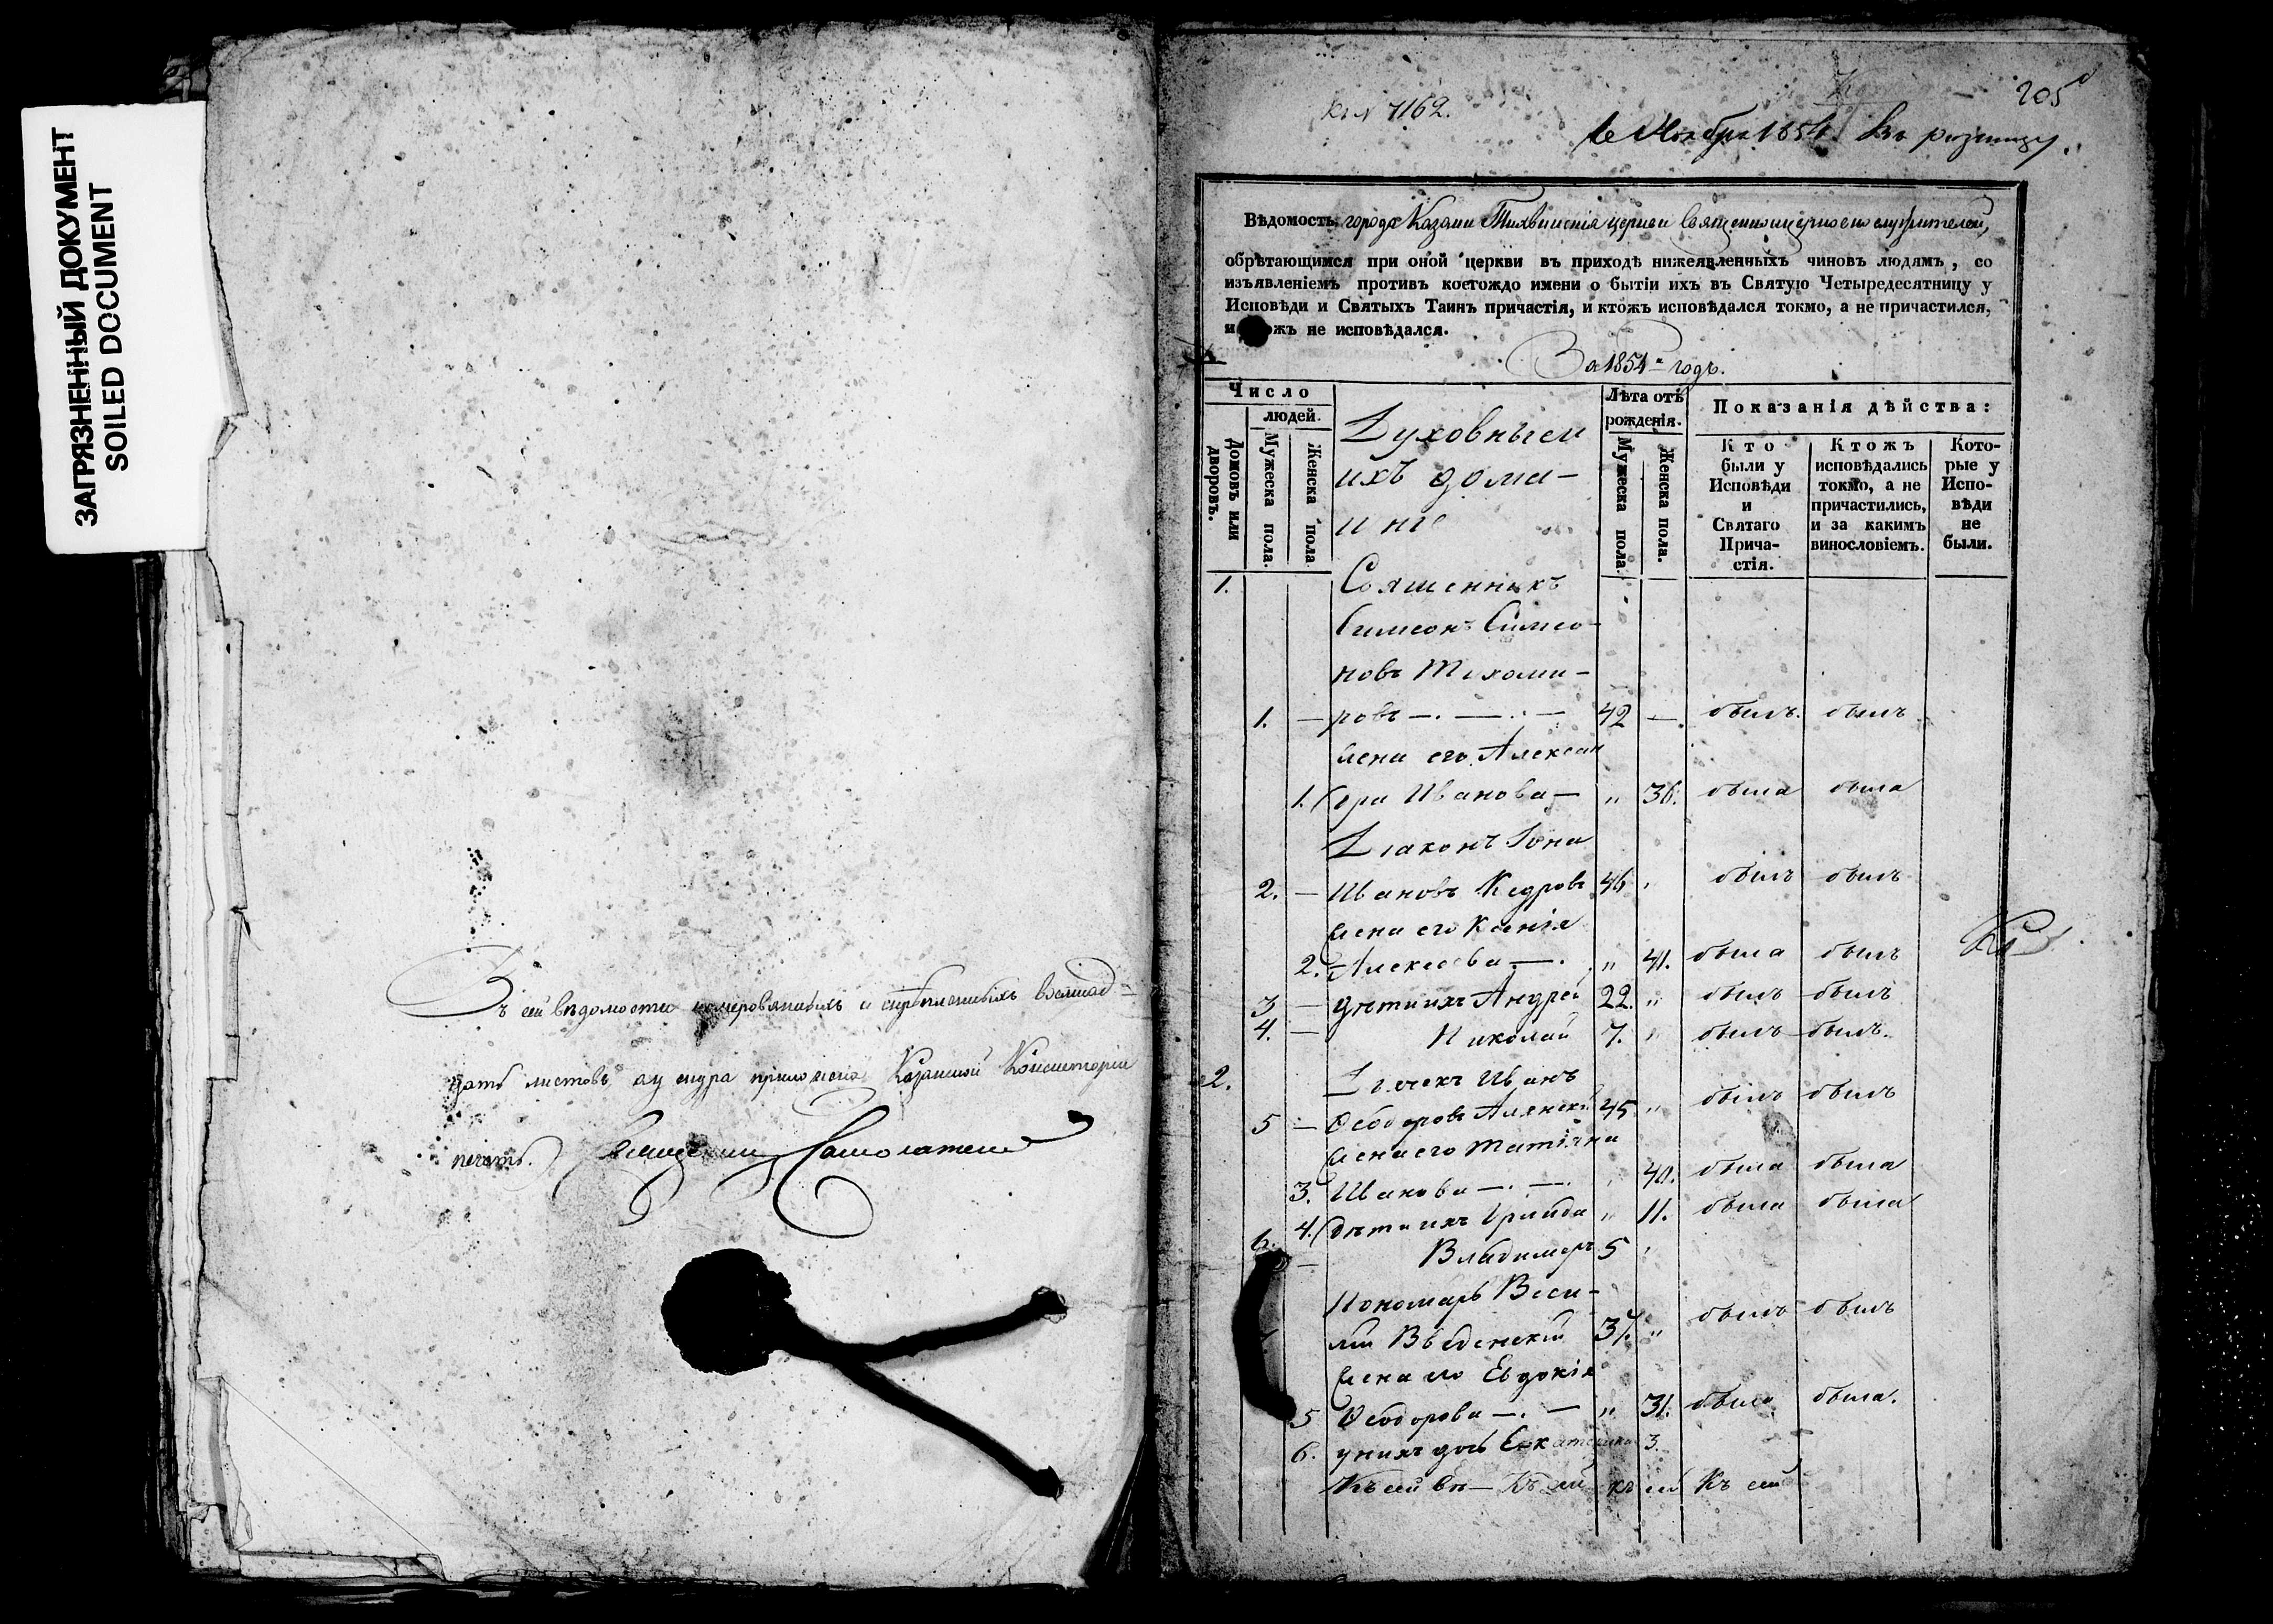 ЗАГРЯЗНЕННЫЙ ДОКУМЕНТ
SOILED DOCUMENT
Въ сей вѣдомости номерованныхъ и скрѣпленныхъ
листовъ печать приложена Казанской Консисторіи
печать.
205
7162.
Ноября 1854. Въ ризницу.
Вѣдомость города Казани Тихвинскія церкви Священноицерковнослужителей,
обрѣтающимся при оной церкви въ приходѣ нижеявленныхъ чиновъ людямъ, со
изъявленіемъ противъ коегождо имени о бытіи ихъ въ Святую Четыредесятницу у
Исповѣди и Святыхъ Таинъ причастія, и ктожъ исповѣдался токмо, а не причастился,
и жъ не исповѣдался.
За 1854й годъ.
Число
людей.
Домовъ или дворовъ.
Мужеска пола.
Женска пола
Духовныеи
ихъ дома-
шніе
Лѣта отъ рожденія.
Мужеска пола.
Женска пола.
Показанія дѣйства:
Кто были у Исповѣди и Святаго Прича- стія.
Ктожъ исповѣдались токмо, а не причастились, и за какимъ винословіемъ.
Кото- рые у Испо- вѣди не были.
1. Священникъ
Симеонъ Симео-
новъ Тихоми-
1. — ровъ —. —. — 42 —. былъ. былъ
жена его Алексан
1. дра Иванова — „ 36. была была
Діаконъ Іона
2. — Ивановъ Кедровъ 46 „ былъ былъ
жена его Ксенія
2. Алексѣева —. „ 41. была былъ
3 — дѣти ихъ Андрей 22. „ былъ былъ
4. — Николай 7. „ былъ былъ.
2. Дьячекъ Иванъ
5 — Ѳеодоровъ 45 „ былъ былъ
жена его Татіяна
3. Иванова —. —. „ 40. была была
4. дѣти ихъ Ираида „ 11. была была
6. — Владимеръ 5 „
Пономарь Васи-
лій Введенскій 37. „ былъ былъ
жена его Евдокія
5 Ѳеодорова —. — „ 31. была была.
6. у нихъ дочь Екатерина 3.
Къ сей вѣ— Къ сей къ сей Къ сей